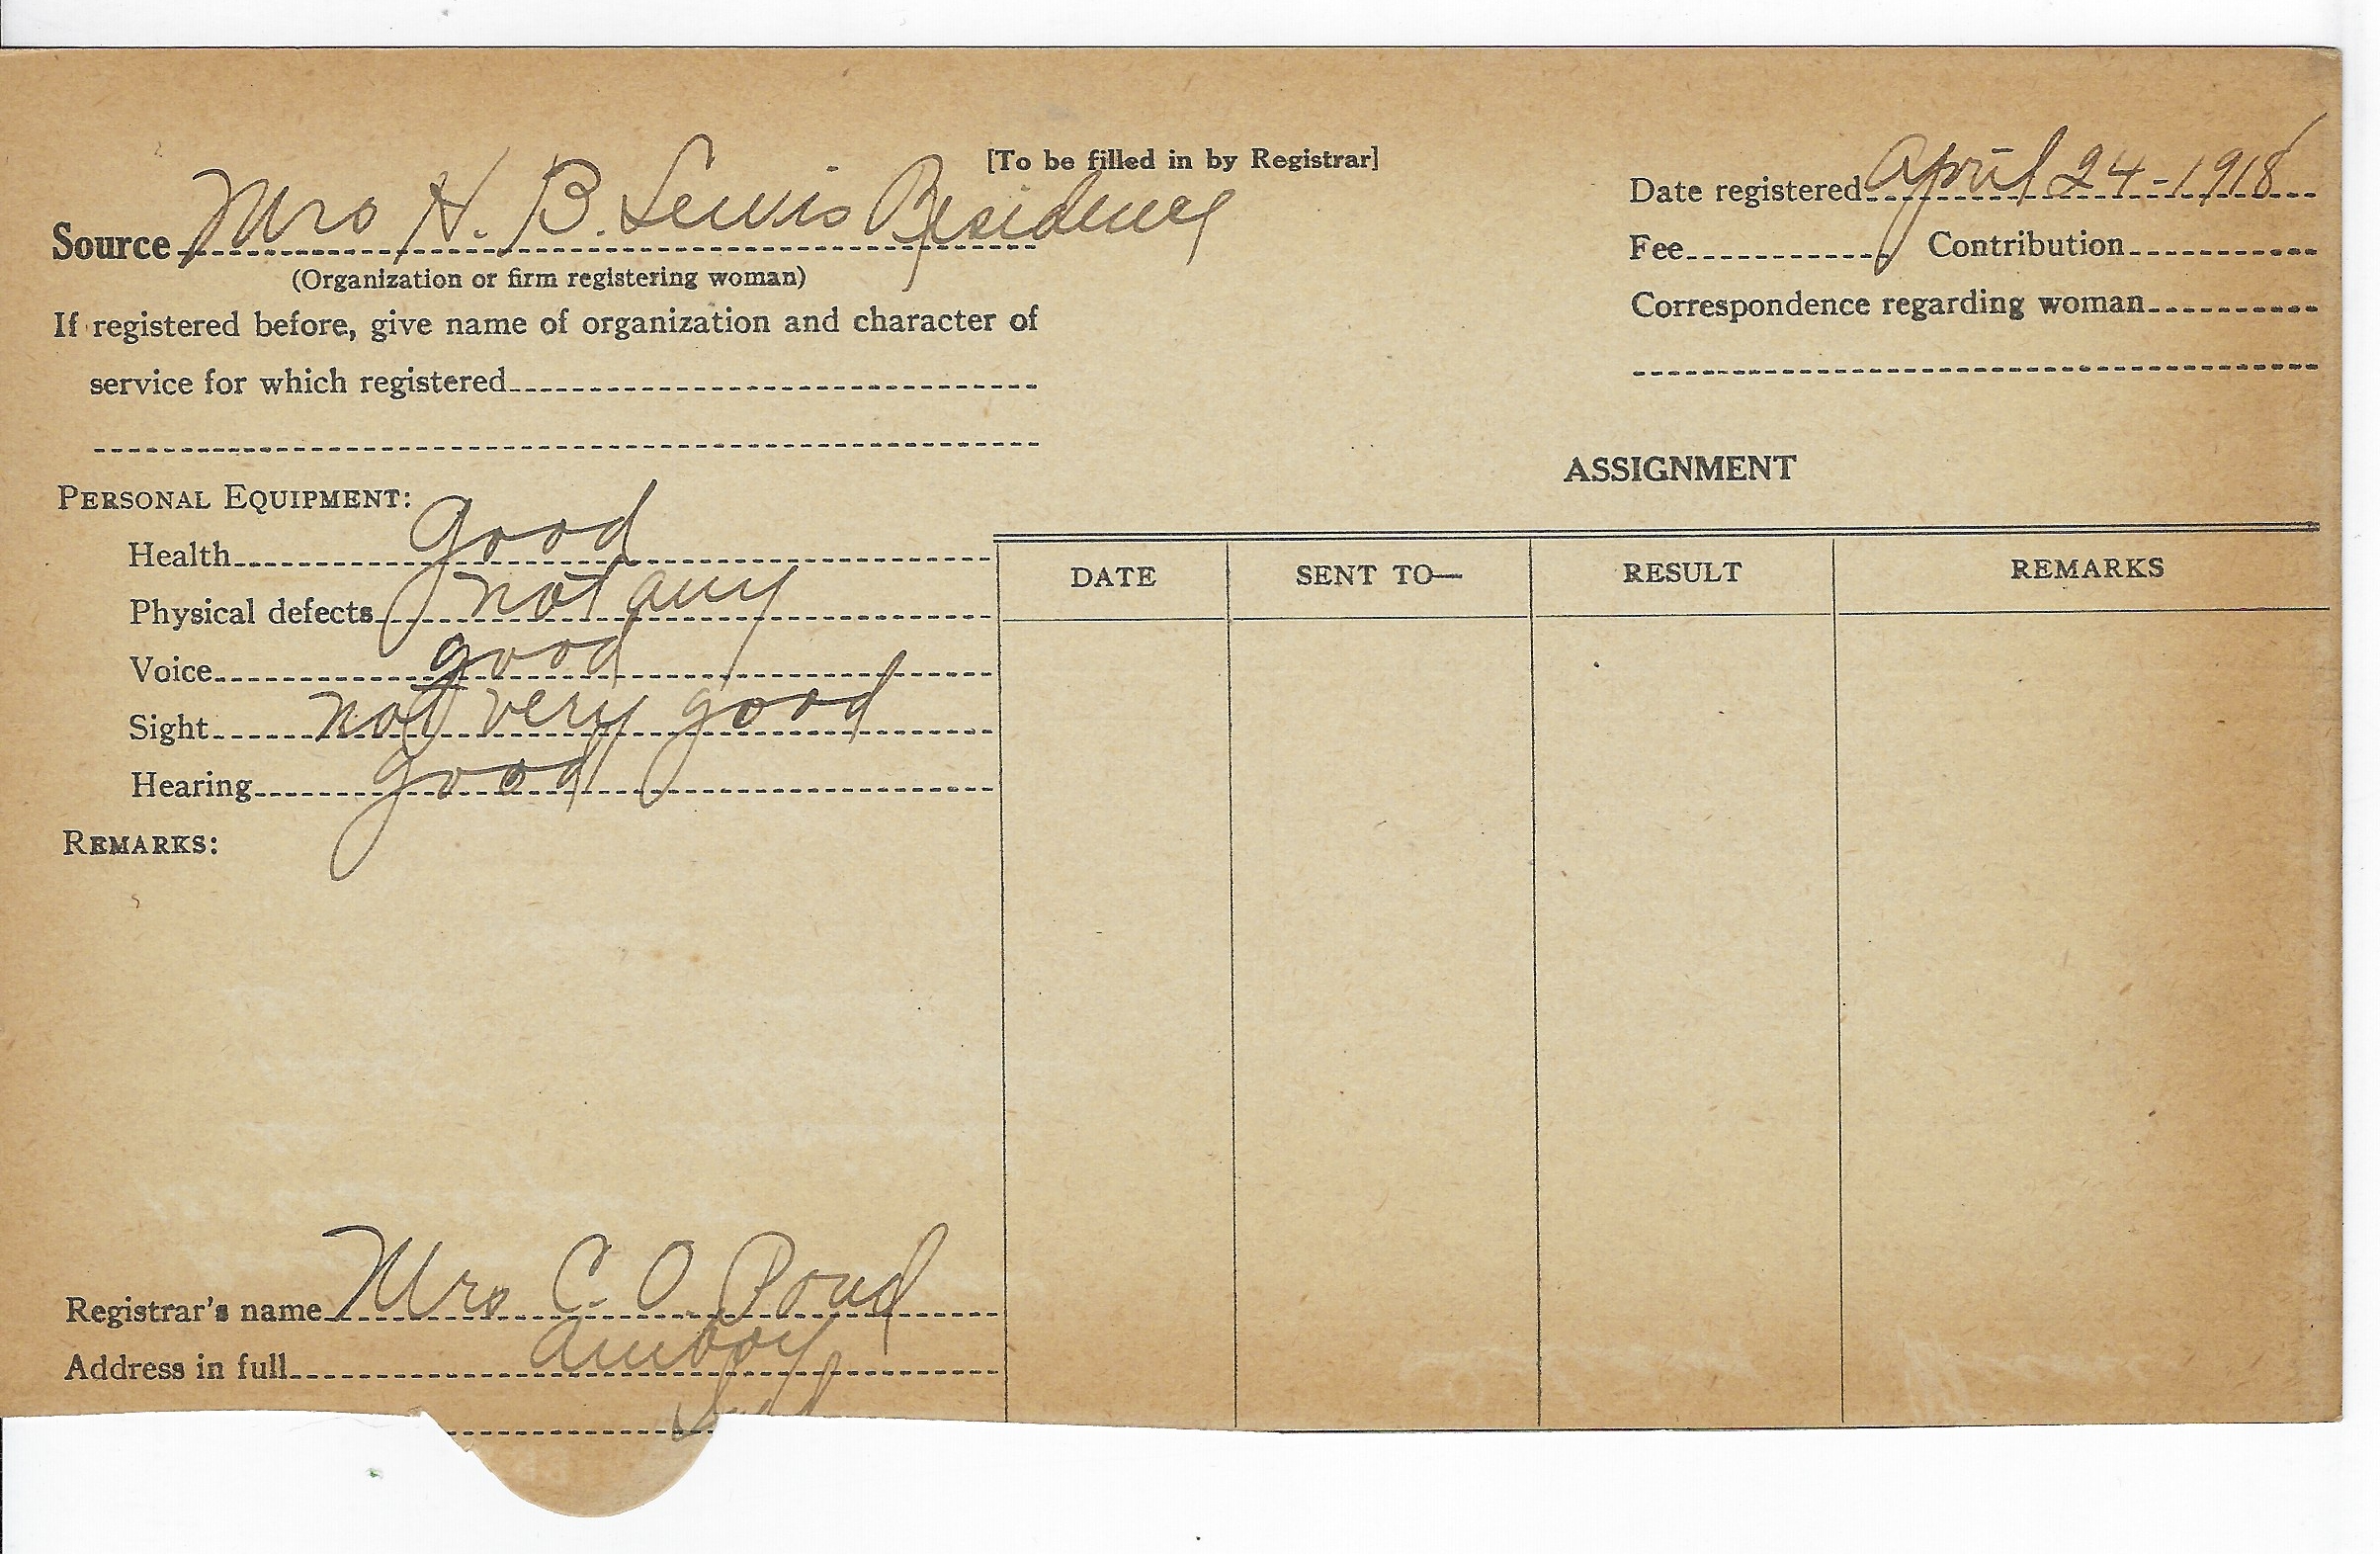 [To be filled in by Registrar]
Source Mrs H. B. Lewis Residence
(Organization or firm registering woman)
If registered before, give name of organization and character of
service for which registered
Date registered April 24-1918
Fee Contribution
Correspondence regarding woman
PERSONAL EQUIPMENT:
Health good
Physical defects not any
Voice good
Sight not very good
Hearing good
REMARKS:
Registrar's name Mrs C. O. Pond
Address in full Amboy
ASSIGNMENT
DATE SENT TO— RESULT REMARKS